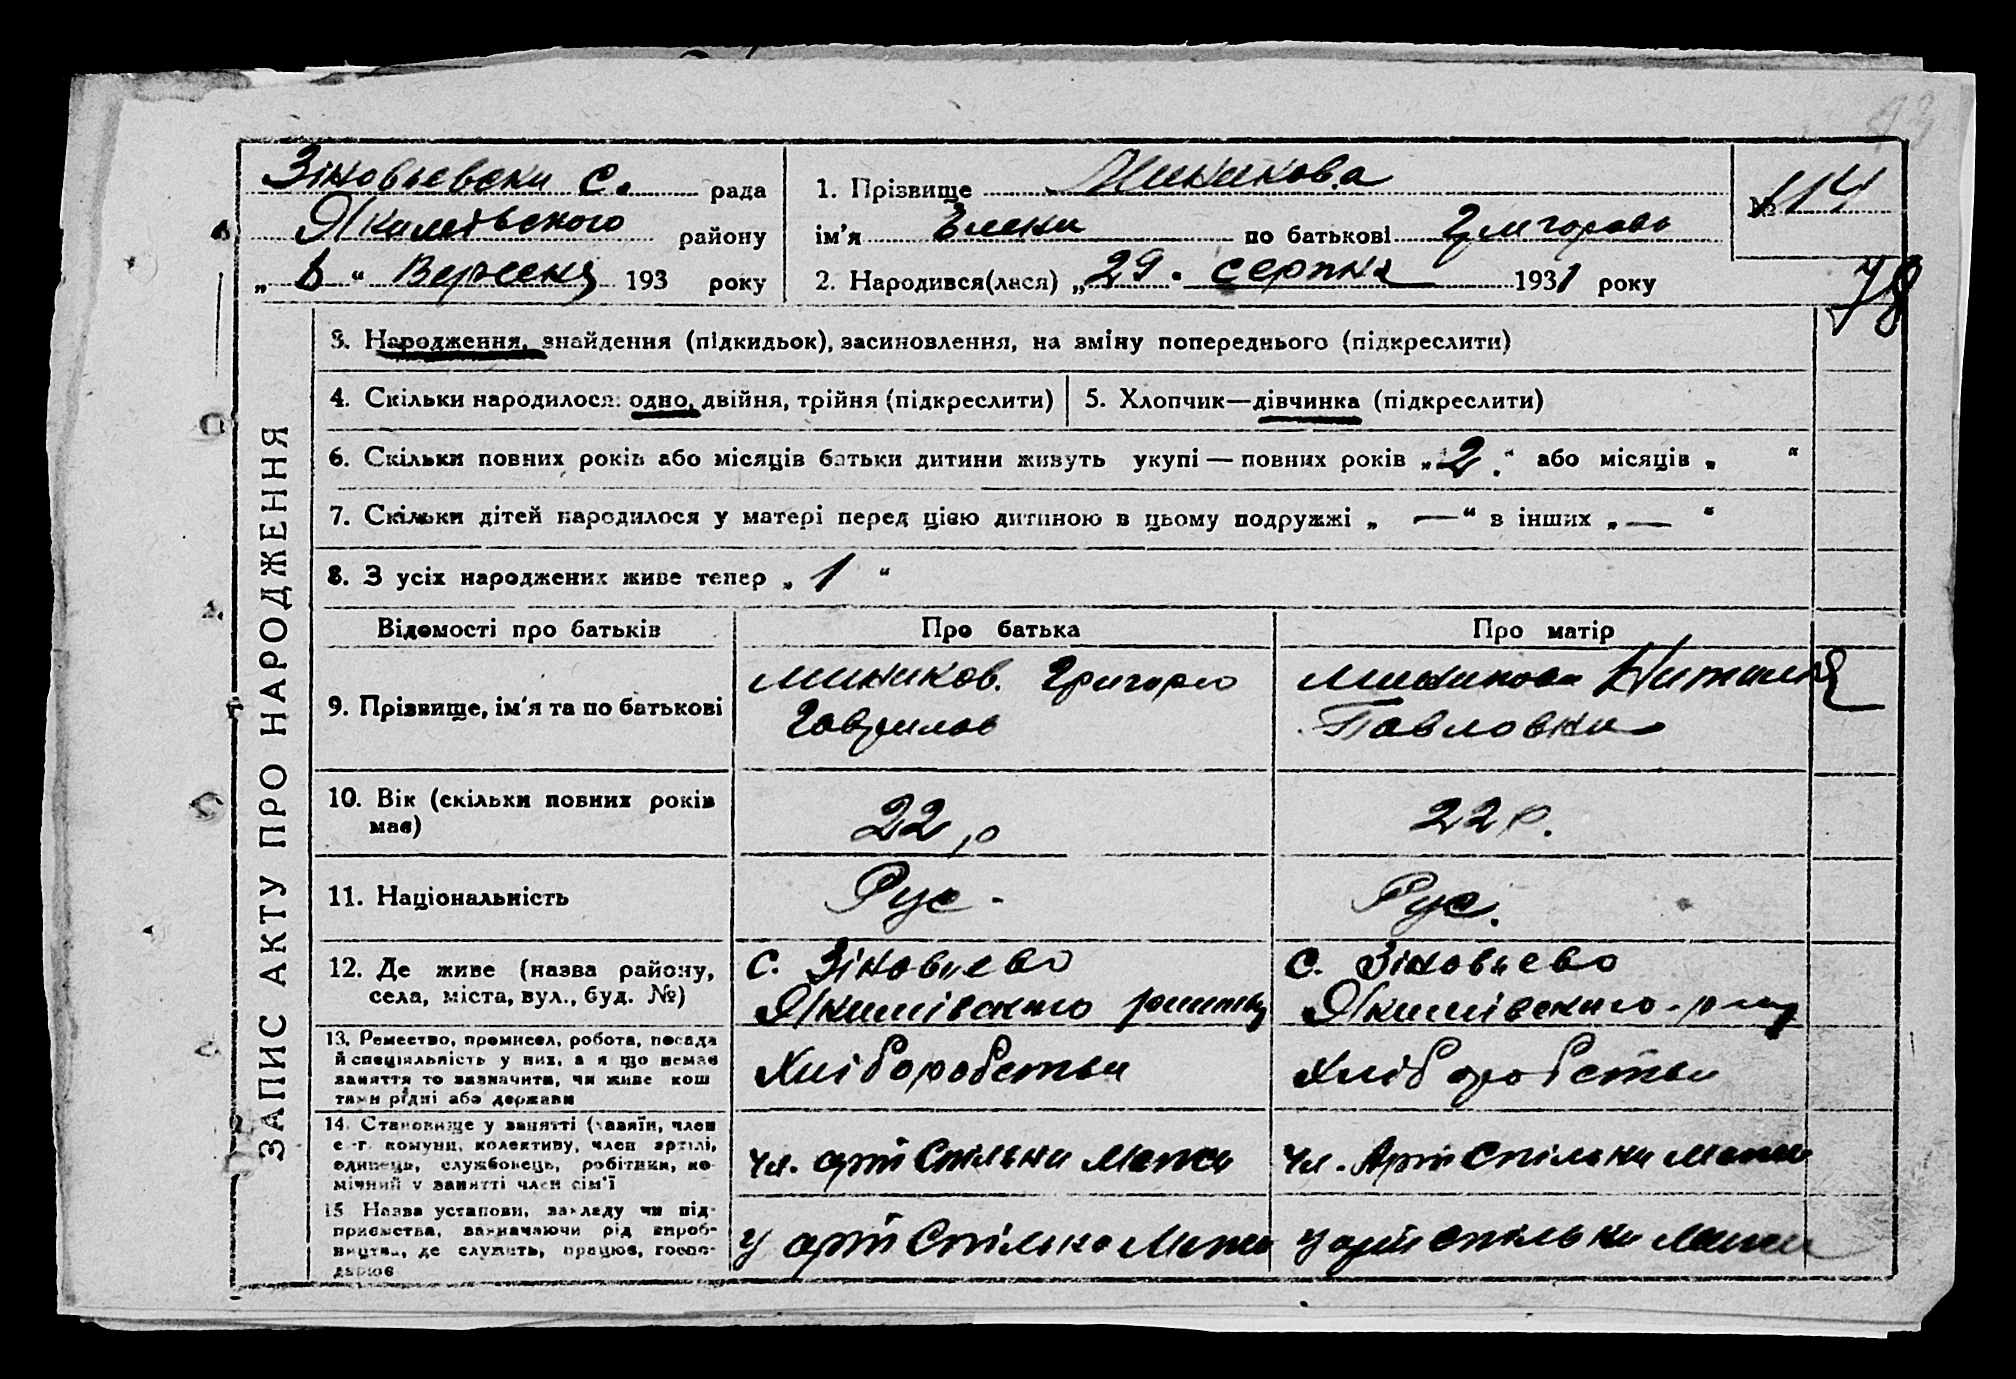 Зіновьевська с. рада
Якимівського району
„ 6 “ Вересня 193 року
1. Прізвище Миникова
ім'я Елена по батькові Григорово
2. Народився(лася) „ 29 серпня 1931 року
№ 114
78
ЗАПИС АКТУ ПРО НАРОДЖЕННЯ
3. Народження, знайдення (підкидьок), засиновлення, на зміну попереднього (підкреслити)
4. Скільки народилося: одно, двійня, трійня (підкреслити)
5. Хлопчик—дівчинка (підкреслити)
6. Скільки повних років або місяців батьки дитини живуть укупі — повних років „ 2 “ або місяців „ “
7. Скільки дітей народилося у матері перед цією дитиною в цьому подружжі „ — “ в інших „ — “
8. З усіх народжених живе тепер „ 1 “
Відомості про батьків Про батька Про матір
9. Прізвище, ім'я та по батькові
Миников Григорио
Гаврилов
Миникова Наталия
Павловна
10. Вік (скільки повних років
має)
22 р
22 р.
11. Національність
Рус.
Рус.
12. Де живе (назва району,
села, міста, вул., буд. №)
с. Зіновьево
Якимівського району
с. Зіновьево
Якимівського району
13. Ремество, промисел, робота, посада
й спеціяльність у них, а якщо немає
заняття то зазначити, чи живе кош
тами рідні або держави
Хліборобства
Хліборобства
14. Становище у занятті (хазяїн, член
с.-г. комуни, колективу, член артілі,
одинець, службовець, робітник, по-
мічний у занятті член сім'ї
чл. арт Спільна Межа
чл. Арт Спільна Межа
15 Назва установи, закладу чи під-
приємства, зазначаючи рід вироб-
ництва, де служить, працює, госпо-
дарює
у арт Спільна Межа
у арт Спільна Межа